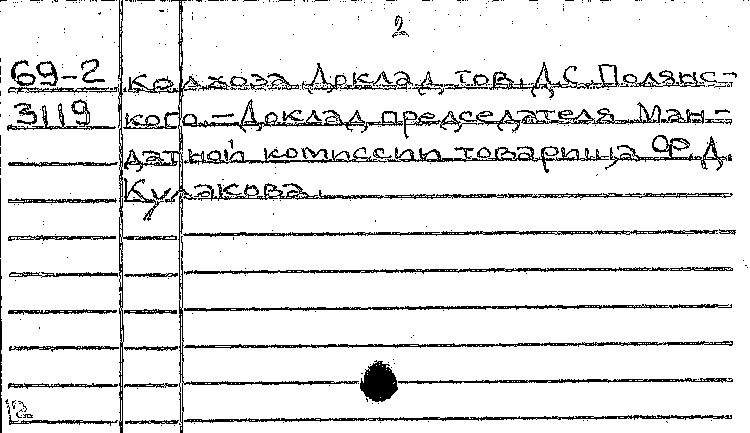 2
69-2 колхоза Доклад тов. Д.С. Полянс-
3119 кого. – Доклад председателя Ман-
датной комиссии товарища Ф.Д.
Кулакова.
12